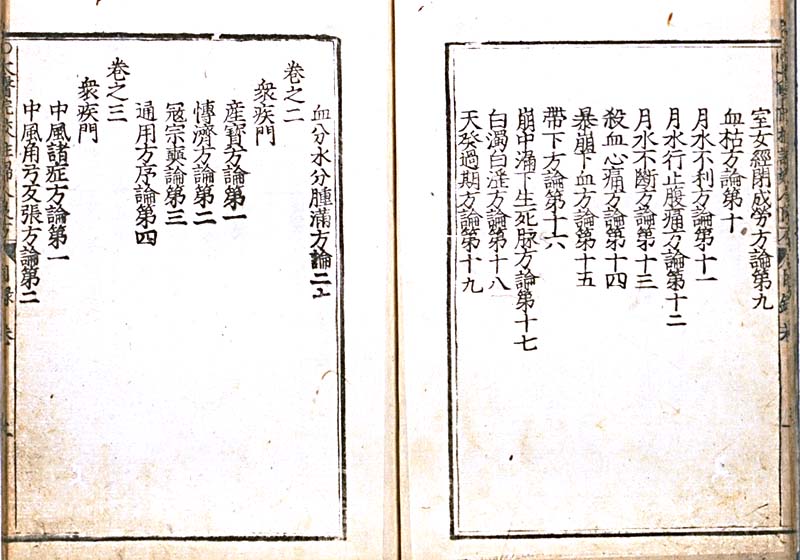 室女經閉成勞方論第九
血枯方論第十
月水不利方論第十一
月水行止腹痛方論第十二
月水不斷方論第十三
殺血心痛方論第十四
暴崩下血方論第十五
帶下方論第十六
崩中漏下生死脉方論第十七
白濁白淫方論第十八
天癸過期方論第十九
血分水分腫滿方論二十
卷之二
衆疾門
産寶方論第一
博濟方論第二
冦宗奭論第三
通用方序論第四
卷之三
衆疾門
中風諸症方論第一
中風角弓反張方論第二